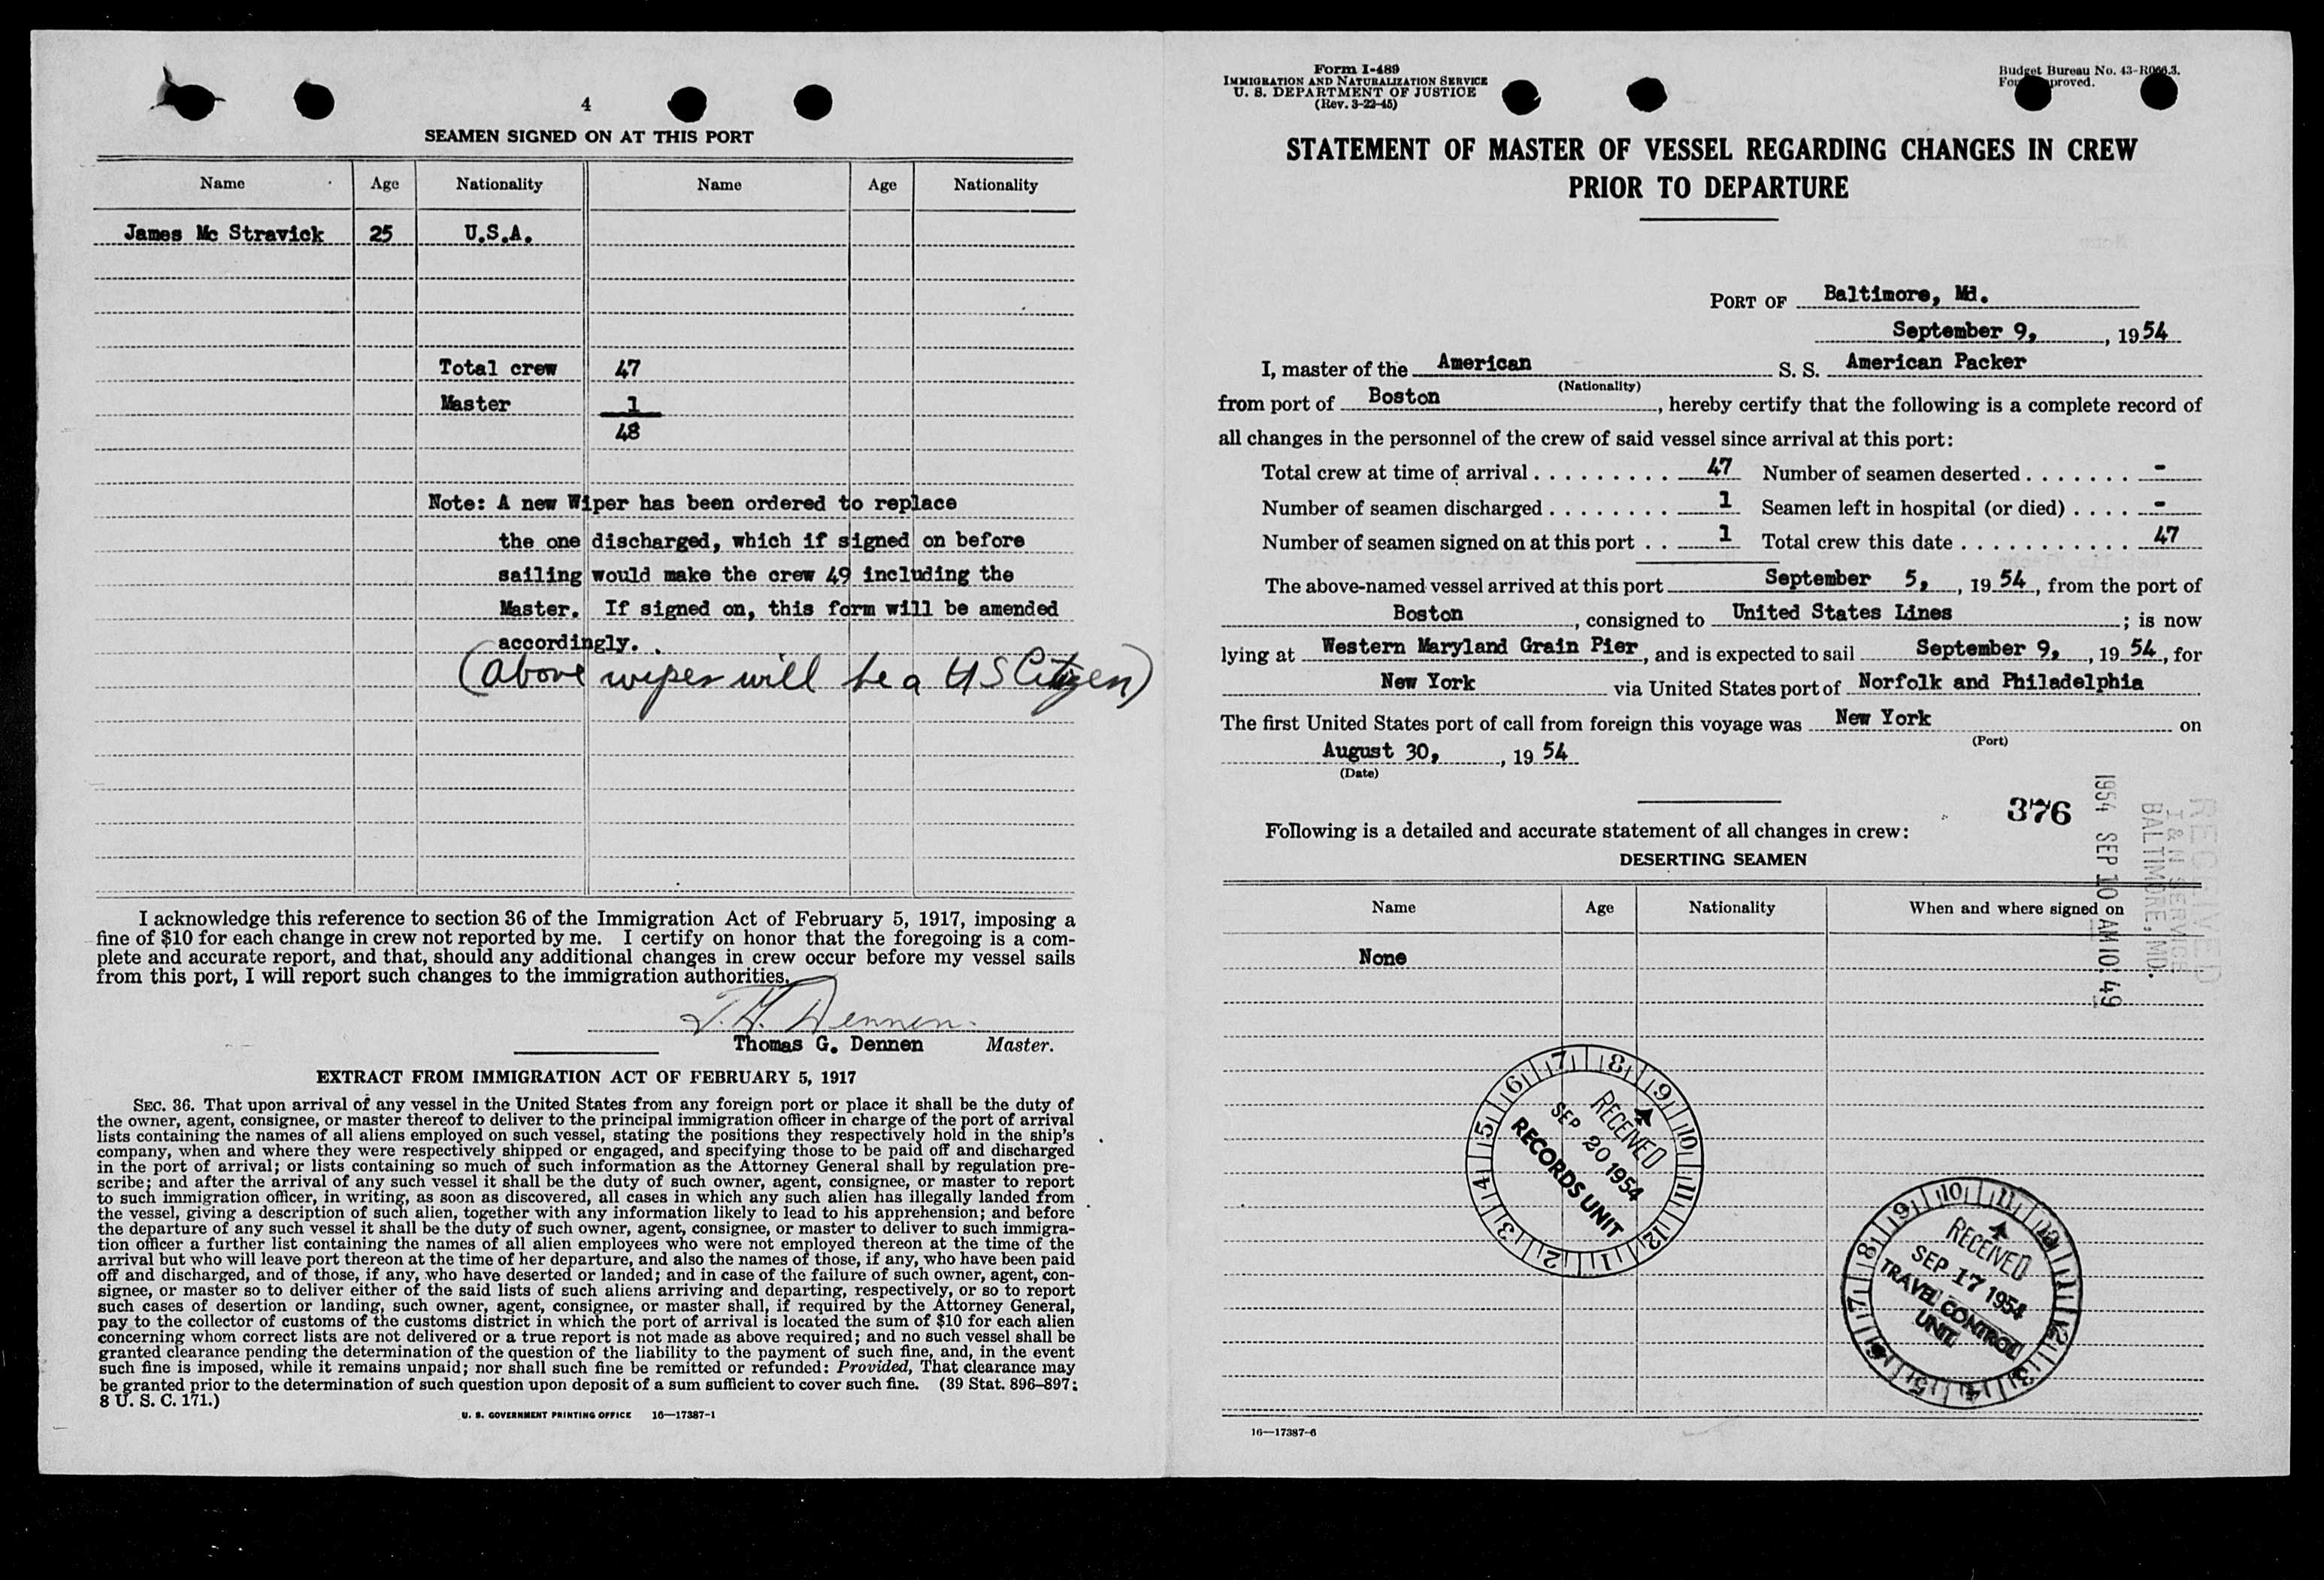 4
SEAMEN SIGNED ON AT THIS PORT
Name Age Nationality Name Age Nationality
James Mc Stravick 25 U.S.A.
Total crew 47
Master 1
48
Note: A new Wiper has been ordered to replace
the one discharged, which if signed on before
sailing would make the crew 49 including the
Master. If signed on, this form will be amended
accordingly.
(above wiper will be a US Citizen)
I acknowledge this reference to section 36 of the Immigration Act of February 5, 1917, imposing a
fine of $10 for each change in crew not reported by me. I certify on honor that the foregoing is a com-
plete and accurate report, and that, should any additional changes in crew occur before my vessel sails
from this port, I will report such changes to the immigration authorities.
T. G. Dennen
Thomas G. Dennen Master.
EXTRACT FROM IMMIGRATION ACT OF FEBRUARY 5, 1917
SEC. 36. That upon arrival of any vessel in the United States from any foreign port or place it shall be the duty of
the owner, agent, consignee, or master thereof to deliver to the principal immigration officer in charge of the port of arrival
lists containing the names of all aliens employed on such vessel, stating the positions they respectively hold in the ship's
company, when and where they were respectively shipped or engaged, and specifying those to be paid off and discharged
in the port of arrival; or lists containing so much of such information as the Attorney General shall by regulation pre-
scribe; and after the arrival of any such vessel it shall be the duty of such owner, agent, consignee, or master to report
to such immigration officer, in writing, as soon as discovered, all cases in which any such alien has illegally landed from
the vessel, giving a description of such alien, together with any information likely to lead to his apprehension; and before
the departure of any such vessel it shall be the duty of such owner, agent, consignee, or master to deliver to such immigra-
tion officer a further list containing the names of all alien employees who were not employed thereon at the time of the
arrival but who will leave port thereon at the time of her departure, and also the names of those, if any, who have been paid
off and discharged, and of those, if any, who have deserted or landed; and in case of the failure of such owner, agent, con-
signee, or master so to deliver either of the said lists of such aliens arriving and departing, respectively, or so to report
such cases of desertion or landing, such owner, agent, consignee, or master shall, if required by the Attorney General,
pay to the collector of customs of the customs district in which the port of arrival is located the sum of $10 for each alien
concerning whom correct lists are not delivered or a true report is not made as above required; and no such vessel shall be
granted clearance pending the determination of the question of the liability to the payment of such fine, and, in the event
such fine is imposed, while it remains unpaid; nor shall such fine be remitted or refunded: Provided, That clearance may
be granted prior to the determination of such question upon deposit of a sum sufficient to cover such fine. (39 Stat. 896–897;
8 U. S. C. 171.)
U. S. GOVERNMENT PRINTING OFFICE 16—17387-1
Form I-489
IMMIGRATION AND NATURALIZATION SERVICE
U. S. DEPARTMENT OF JUSTICE
(Rev. 3-22-45)
Budget Bureau No. 43-R066.3.
STATEMENT OF MASTER OF VESSEL REGARDING CHANGES IN CREW
PRIOR TO DEPARTURE
PORT OF Baltimore, Md.
September 9, , 1954
I, master of the American S. S. American Packer
(Nationality)
from port of Boston , hereby certify that the following is a complete record of
all changes in the personnel of the crew of said vessel since arrival at this port:
Total crew at time of arrival . . . . . . . . . 47 Number of seamen deserted . . . . . . . -
Number of seamen discharged . . . . . . . . 1 Seamen left in hospital (or died) . . . . -
Number of seamen signed on at this port . . 1 Total crew this date . . . . . . . . . . . 47
The above-named vessel arrived at this port September 5, , 1954, from the port of
Boston , consigned to United States Lines ; is now
lying at Western Maryland Grain Pier, and is expected to sail September 9, , 1954, for
New York via United States port of Norfolk and Philadelphia
The first United States port of call from foreign this voyage was New York on
(Port)
August 30, , 1954
(Date)
376
Following is a detailed and accurate statement of all changes in crew:
DESERTING SEAMEN
Name Age Nationality When and where signed on
None
RECEIVED
I & N SERVICE
BALTIMORE, MD.
1954 SEP 10 AM 10:49
RECEIVED
SEP 20 1954
RECORDS UNIT
7 8 9 10 11 12 1 2 3 4 5 6
RECEIVED
SEP 17 1954
TRAVEL CONTROL
UNIT
10 11 12 1 2 3 4 5 6 7 8 9
16—17387-6